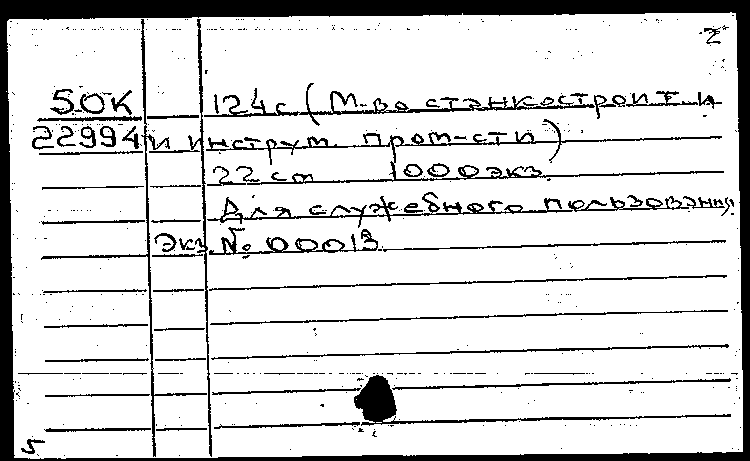 2
50К 124с (М-во станкостроит. и
22994 и инструм. пром-сти)
22 см 1000экз.
Для служебного пользования
Экз. № 00013
5